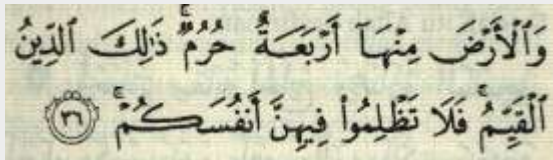 وَٱلْأَرْضَ مِنْهَآ أَرْبَعَةٌ حُرُمٌۚ ذَٰلِكَ ٱلدِّينُ
ٱلْقَيِّمُۚ فَلَا تَظْلِمُوا۟ فِيهِنَّ أَنفُسَكُمْۚ ٣٦